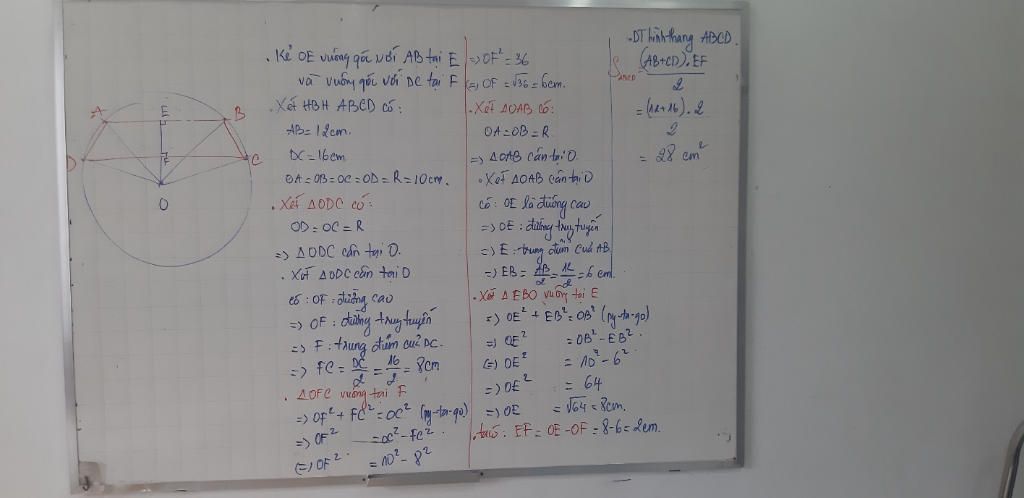 A
E
B
D
F
C
O
. Kẻ OE vuông góc với AB tại E
và vuông góc với DC tại F
. Xét HBH ABCD có:
AB = 12cm.
DC = 16cm
OA = OB = OC = OD = R = 10cm.
. Xét ΔODC có:
OD = OC = R
=> ΔODC cân tại O.
. Xét ΔODC cân tại O
có: OF: đường cao
=> OF: đường truy tuyến
=> F: trung điểm của DC.
=> FC = DC/2 = 16/2 = 8cm
. ΔOFC vuông tại F
=> OF² + FC² = OC² (py-ta-go)
=> OF² = OC² - FC²
(=) OF² = 10² - 8²
=> OF² = 36
(=) OF = √36 = 6cm.
. Xét ΔOAB có:
OA = OB = R
=> ΔOAB cân tại O.
. Xét ΔOAB cân tại O
có: OE là đường cao
=> OE: đường truy tuyến
=> E: trung điểm của AB
=> EB = AB/2 = 12/2 = 6 cm.
. Xét ΔEBO vuông tại E
=> OE² + EB² = OB² (py-ta-go)
=> OE² = OB² - EB²
(=) OE² = 10² - 6²
=> OE² = 64
=> OE = √64 = 8cm.
. ta có: EF = OE - OF = 8 - 6 = 2cm.
. DT hình thang ABCD.
S ABCD = (AB + CD) . EF / 2
= (12 + 16) . 2 / 2
= 28 cm²